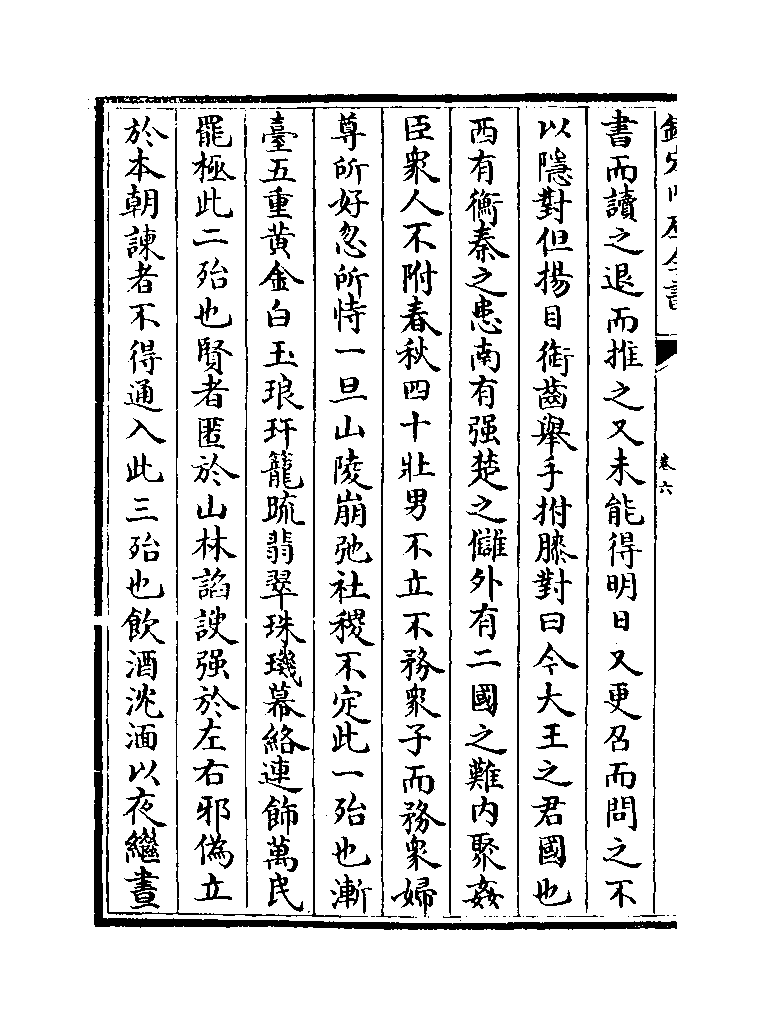 欽定四庫全書
卷六
書而讀之退而推之又未能得明日又更召而問之不
以隱對但揚目銜齒舉手拊膝對曰今大王之君國也
西有衡秦之患南有强楚之讎外有二國之難内聚姦
臣衆人不附春秋四十壯男不立不務衆子而務衆婦
尊所好忽所恃一旦山陵崩弛社稷不定此一殆也漸
臺五重黄金白玉琅玕籠疏翡翠珠璣幕絡連飾萬民
罷極此二殆也賢者匿於山林諂諛强於左右邪偽立
於本朝諫者不得通入此三殆也飲酒沈湎以夜繼晝